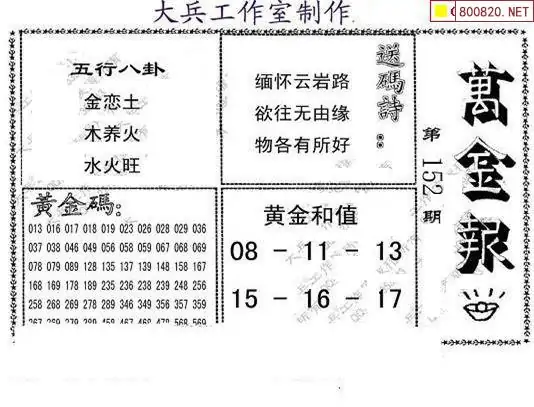 大兵工作室制作
800820.NET
五行八卦
金恋土
木养火
水火旺
缅怀云岩路
欲往无由缘
物各有所好
送碼詩:
萬金報
第152期
黃金碼:
013 016 017 018 019 023 026 028 029 036
037 038 046 049 056 058 059 067 068 069
078 079 089 128 135 137 139 148 158 167
168 169 178 189 235 236 238 239 248 256
258 268 269 278 289 346 349 356 357 359
黄金和值
08 - 11 - 13
15 - 16 - 17